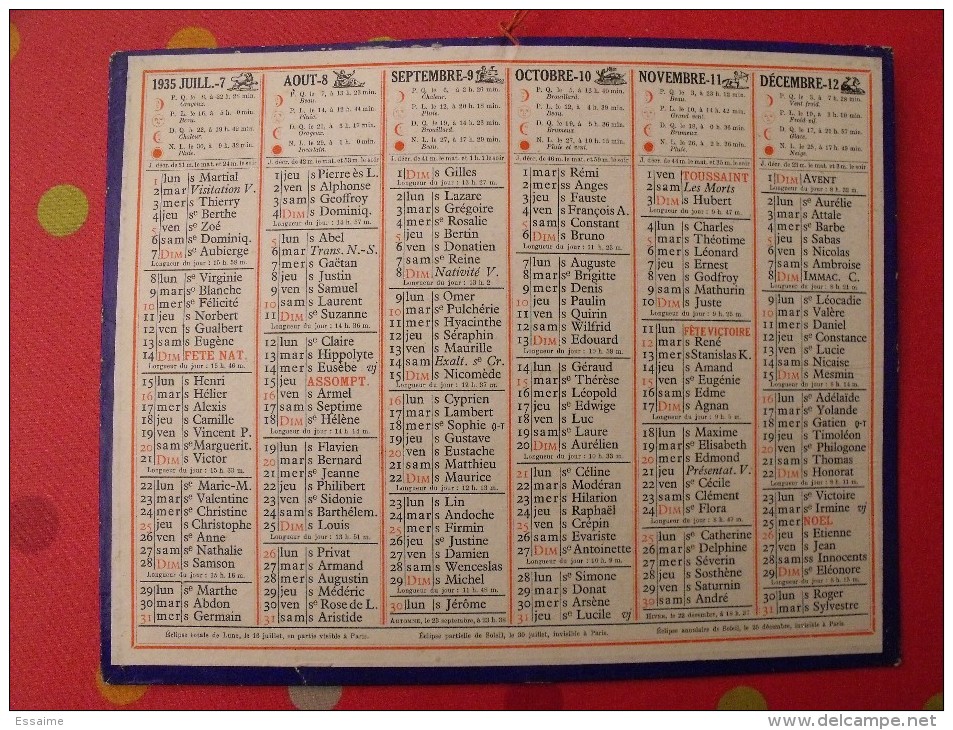 1935 JUILL.-7
J. décr. de 31 m. le mat. et 24 m. le soir
1 lun s Martial
2 mar Visitation V.
3 mer s Thierry
4 jeu se Berthe
5 ven se Zoé
6 sam se Dominiq.
7 DIM se Aubierge
Longueur du jour : 15 h. 58 m.
8 lun se Virginie
9 mar se Blanche
10 mer se Félicité
11 jeu s Norbert
12 ven s Gualbert
13 sam s Eugène
14 DIM FETE NAT.
Longueur du jour : 15 h. 46 m.
15 lun s Henri
16 mar s Hélier
17 mer s Alexis
18 jeu s Camille
19 ven s Vincent P.
20 sam se Marguerit.
21 DIM s Victor
Longueur du jour : 15 h. 33 m.
22 lun se Marie-M.
23 mar s Valentine
24 mer se Christine
25 jeu s Christophe
26 ven se Anne
27 sam se Nathalie
28 DIM s Samson
Longueur du jour : 15 h. 16 m.
29 lun se Marthe
30 mar s Abdon
31 mer s Germain
AOUT-8
J. décr. de 42 m. le mat. et 53 m. le soir
1 jeu s Pierre ès L.
2 ven s Alphonse
3 sam s Geoffroy
4 DIM s Dominiq.
5 lun s Abel
6 mar Trans. N.-S.
7 mer s Gaëtan
8 jeu s Justin
9 ven s Samuel
10 sam s Laurent
11 DIM se Suzanne
Longueur du jour : 14 h. 36 m.
12 lun se Claire
13 mar s Hippolyte
14 mer s Eusèbe vj
15 jeu ASSOMPT.
16 ven s Armel
17 sam s Septime
18 DIM se Hélène
19 lun s Flavien
20 mar s Bernard
21 mer se Jeanne
22 jeu s Philibert
23 ven se Sidonie
24 sam s Barthélem.
25 DIM s Louis
Longueur du jour : 13 h. 51 m.
26 lun s Privat
27 mar s Armand
28 mer s Augustin
29 jeu s Médéric
30 ven se Rose de L.
31 sam s Aristide
SEPTEMBRE-9
1 DIM s Gilles
Longueur du jour : 13 h. 27 m.
2 lun s Lazare
3 mar s Grégoire
4 mer se Rosalie
5 jeu s Bertin
6 ven s Donatien
7 sam se Reine
8 DIM Nativité V.
9 lun s Omer
10 mar se Pulchérie
11 mer s Hyacinthe
12 jeu s Séraphin
13 ven s Maurille
14 sam Exalt. se Cr.
15 DIM s Nicomède
Longueur du jour : 12 h. 37 m.
16 lun s Cyprien
17 mar s Lambert
18 mer se Sophie q-t
19 jeu s Gustave
20 ven s Eustache
21 sam s Matthieu
22 DIM s Maurice
Longueur du jour : 12 h. 13 m.
23 lun s Lin
24 mar s Andoche
25 mer s Firmin
26 jeu se Justine
27 ven s Damien
28 sam s Wenceslas
29 DIM s Michel
Longueur du jour : 11 h. 48 m.
30 lun s Jérôme
OCTOBRE-10
1 mar s Rémi
2 mer ss Anges
3 jeu s Fauste
4 ven s François A.
5 sam s Constant
6 DIM s Bruno
7 lun s Auguste
8 mar se Brigitte
9 mer s Denis
10 jeu s Paulin
11 ven s Quirin
12 sam s Wilfrid
13 DIM s Edouard
14 lun s Géraud
15 mar se Thérèse
16 mer s Léopold
17 jeu se Edwige
18 ven s Luc
19 sam se Laure
20 DIM s Aurélien
Longueur du jour : 10 h. 33 m.
21 lun se Céline
22 mar s Modéran
23 mer s Hilarion
24 jeu s Raphaël
25 ven s Crépin
26 sam s Evariste
27 DIM se Antoinette
Longueur du jour : 10 h. 9 m.
28 lun se Simone
29 mar s Donat
30 mer s Arsène
31 jeu se Lucile vj
NOVEMBRE-11
1 ven TOUSSAINT
2 sam Les Morts
3 DIM s Hubert
Longueur du jour : 9 h. 47 m.
4 lun s Charles
5 mar s Théotime
6 mer s Léonard
7 jeu s Ernest
8 ven s Godfroy
9 sam s Mathurin
10 DIM s Juste
11 lun FÊTE VICTOIRE
12 mar s René
13 mer s Stanislas K.
14 jeu s Amand
15 ven se Eugénie
16 sam s Edme
17 DIM s Agnan
18 lun s Maxime
19 mar se Elisabeth
20 mer s Edmond
21 jeu Présentat. V.
22 ven se Cécile
23 sam s Clément
24 DIM se Flora
Longueur du jour : 8 h. 47 m.
25 lun se Catherine
26 mar se Delphine
27 mer s Séverin
28 jeu s Sosthène
29 ven s Saturnin
30 sam s André
DÉCEMBRE-12
1 DIM AVENT
2 lun se Aurélie
3 mar s Attale
4 mer se Barbe
5 jeu s Sabas
6 ven s Nicolas
7 sam s Ambroise
8 DIM IMMAC. C.
9 lun se Léocadie
10 mar s Valère
11 mer s Daniel
12 jeu se Constance
13 ven se Lucie
14 sam s Nicaise
15 DIM s Mesmin
Longueur du jour : 8 h. 14 m.
16 lun se Adélaïde
17 mar se Yolande
18 mer s Gatien q-t
19 jeu s Timoléon
20 ven se Philogone
21 sam s Thomas
22 DIM s Honorat
Longueur du jour : 8 h. 11 m.
23 lun se Victoire
24 mar se Irmine vj
25 mer NOEL
26 jeu s Etienne
27 ven s Jean
28 sam ss Innocents
29 DIM se Eléonore
30 lun s Roger
31 mar s Sylvestre
Éclipse totale de Lune, le 16 juillet, en partie visible à Paris.
Éclipse partielle de Soleil, le 30 juillet, invisible à Paris.
Éclipse annulaire de Soleil, le 25 décembre, invisible à Paris.
Essaime
www.delcampe.net